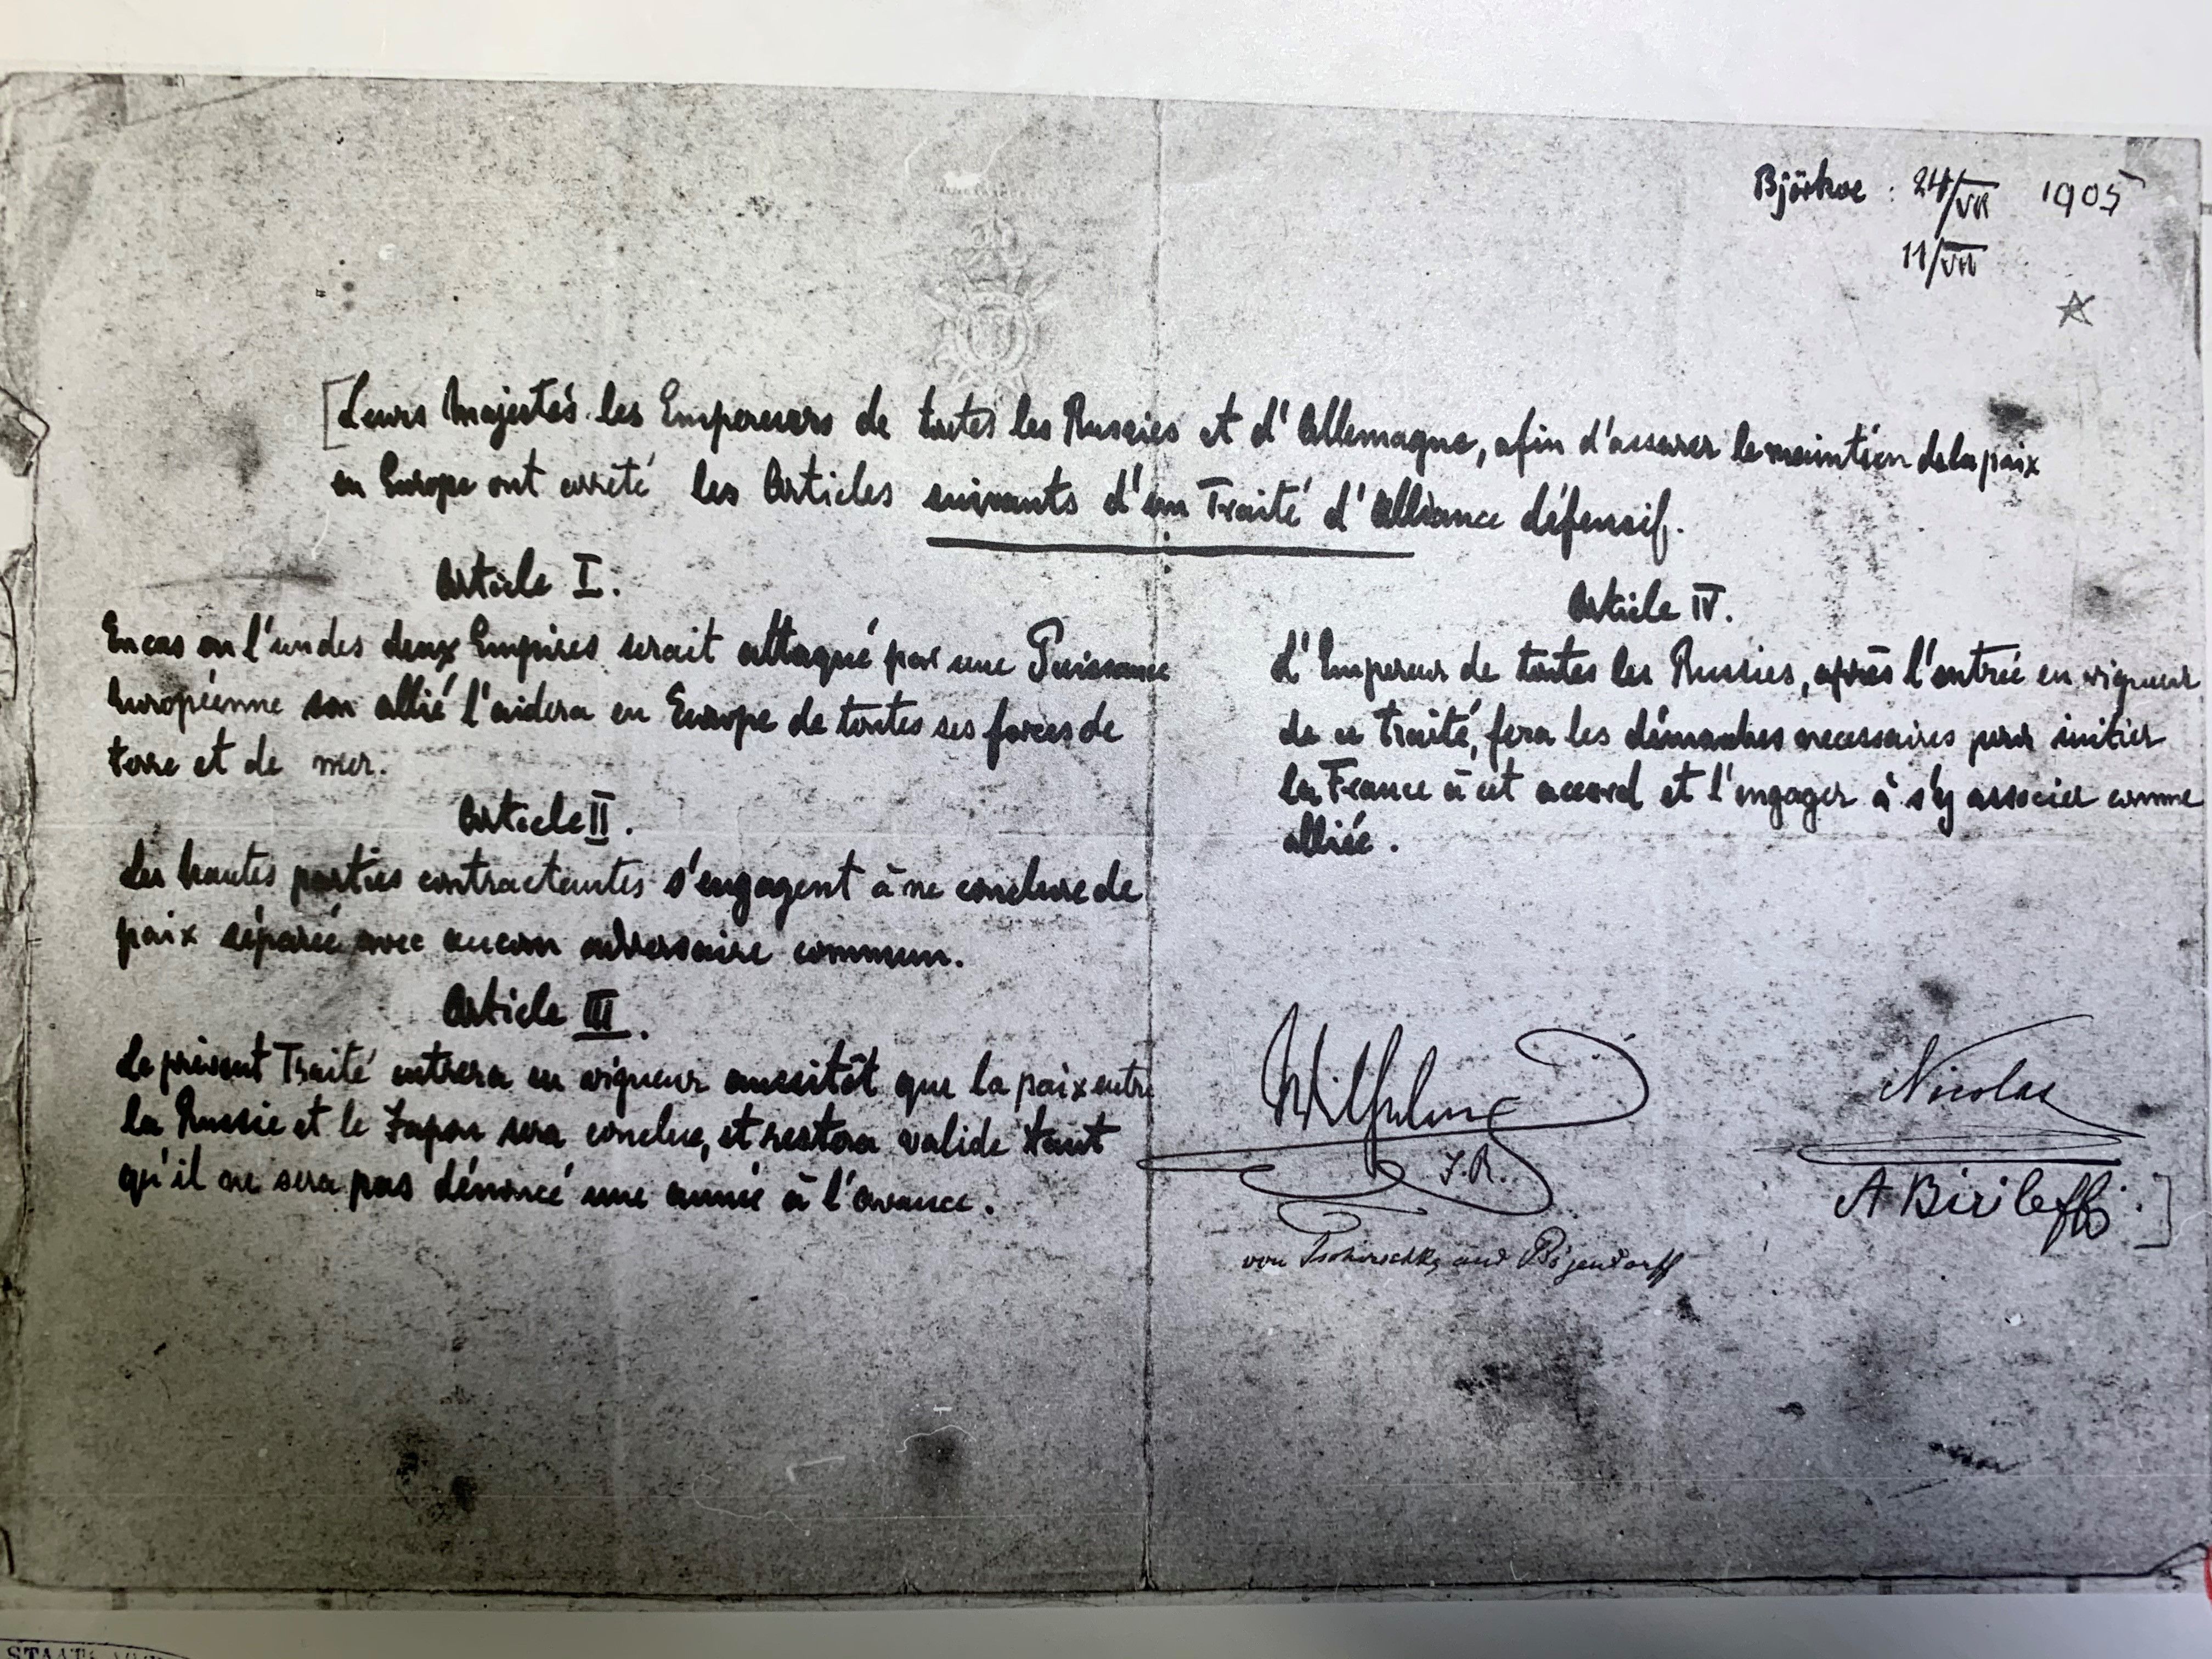 Björkoe : 24/VII 1905
11/VII
[Leurs Majestés les Empereurs de toutes les Russies et d'Allemagne, afin d'assurer le maintien de la paix
en Europe ont arrêté les Articles suivants d'un Traité d'Alliance défensif.
Article I.
En cas ou l'un des deux Empires serait attaqué par une Puissance
Européenne son allié l'aidera en Europe de toutes ses forces de
terre et de mer.
Article II.
Les hautes parties contractantes s'engagent à ne conclure de
paix séparée avec aucun adversaire commun.
Article III.
Le présent Traité entrera en vigueur aussitôt que la paix entre
la Russie et le Japon sera conclue, et restera valide tant
qu'il ne sera pas dénoncé une année à l'avance.
Article IV.
L'Empereur de toutes les Russies, après l'entrée en vigueur
de ce Traité, fera les démarches necessaires pour initier
la France à cet accord et l'engager à s'y associer comme
alliée.
Wilhelm
I.R.
von Tschirschky und Bögendorff
Nicolas
A Birileff.]